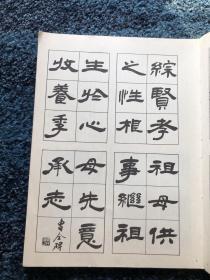 綜賢孝
之性根
生於心
收養季
祖母供
事繼祖
母先意
承志
曹全碑